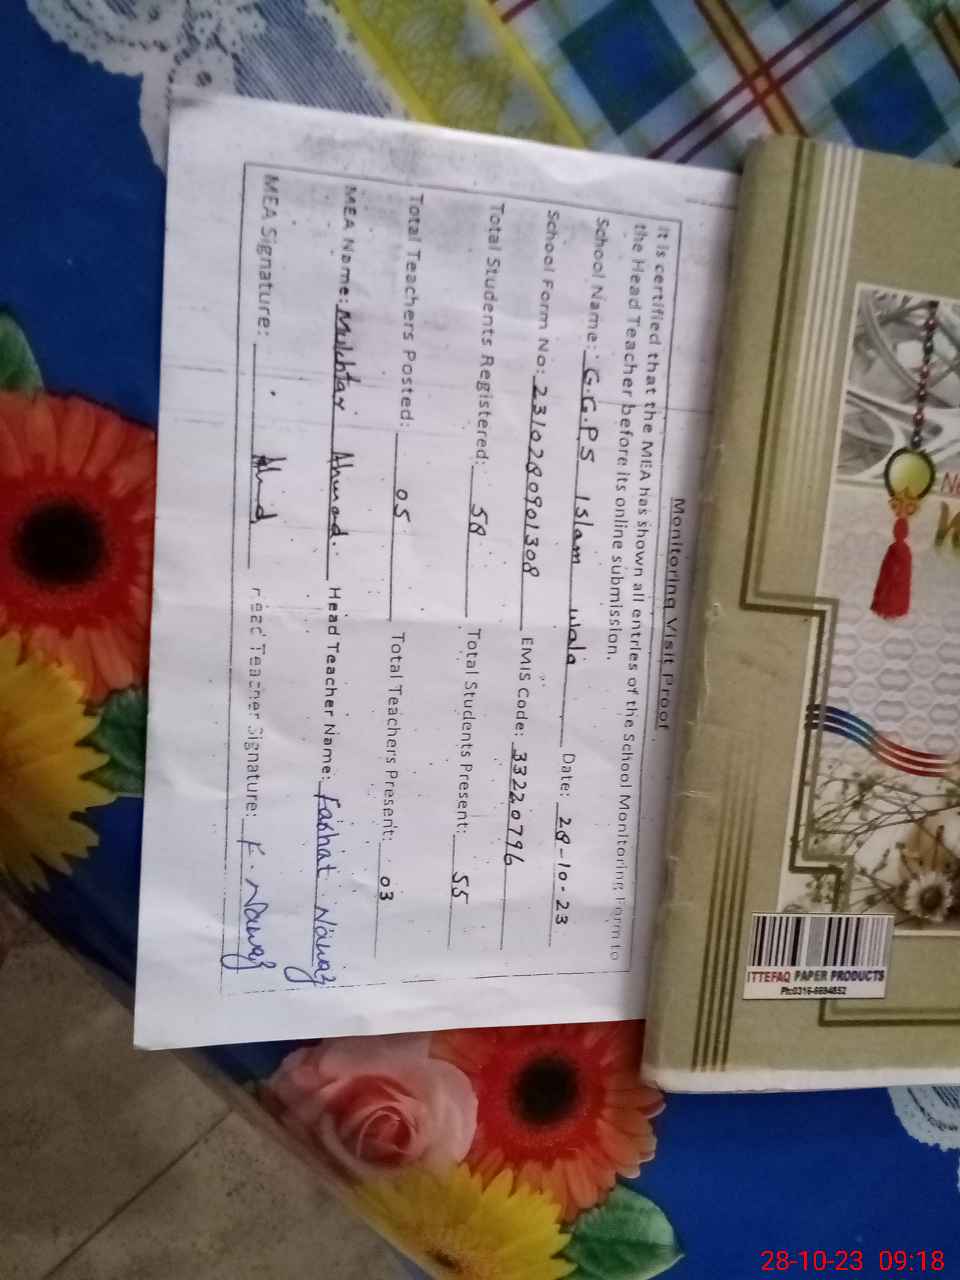 Monitoring Visit Proof
It is certified that the MEA has shown all entries of the School Monitoring Form to
the Head Teacher before its online submission.
School Name: G.G.P.S Islam wala Date: 28-10-23
School Form No: 2310280901308 EMIS Code: 33220796
Total Students Registered: 58 Total Students Present: 55
Total Teachers Posted: 05 Total Teachers Present: 03
MEA Name: Mukhtar Ahmad. Head Teacher Name: Farhat Nawaz
MEA Signature: Head Teacher Signature: F. Nawaz
ITTEFAQ PAPER PRODUCTS
Ph:0316-6694852
28-10-23 09:18